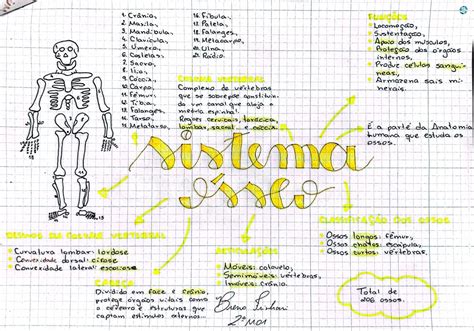 1. Crânio,
2. Maxila,
3. Mandíbula,
4. Clavícula,
5. Úmero,
6. Costelas,
7. Sacro,
8. Ílio,
9. Cóccix,
10. Carpo,
11. Fêmur,
12. Tíbia,
13. Falanges,
14. Tarso,
15. Metatarso,
16. Fíbula,
17. Patela,
18. Falanges,
19. Metacarpo,
20. Ulna,
21. Rádio.
COLUNA VERTEBRAL
Complexo de vértebras
que se sobrepõe constituin-
do um canal que aloja a
medula espinhal
Regiões cervicais, torácica,
lombar, sacral e cóccix
FUNÇÕES
• Locomoção,
• Sustentação,
• Apoio dos músculos,
• Proteção dos órgãos
internos,
• Produz células sanguí-
neas,
• Armazena sais mi-
nerais.
É a parte da Anatomia
humana que estuda os
ossos.
sistema
ósseo
DESVIOS DA COLUNA VERTEBRAL
• Curvatura lombar: lordose
• Convexidade dorsal: cifose
• Convexidade lateral: escoliose
CABEÇA
Dividido em face e crânio,
protege órgãos vitais como
o cérebro e estruturas que
captam estímulos externos.
ARTICULAÇÕES
• Móveis: cotovelo,
• Semimóveis: vértebras,
• Imóveis: crânio.
2º M01
CLASSIFICAÇÃO DOS OSSOS
• Ossos longos: fêmur,
• Ossos chatos: escápula,
• Ossos curtos: vértebras.
Total de
206 ossos.